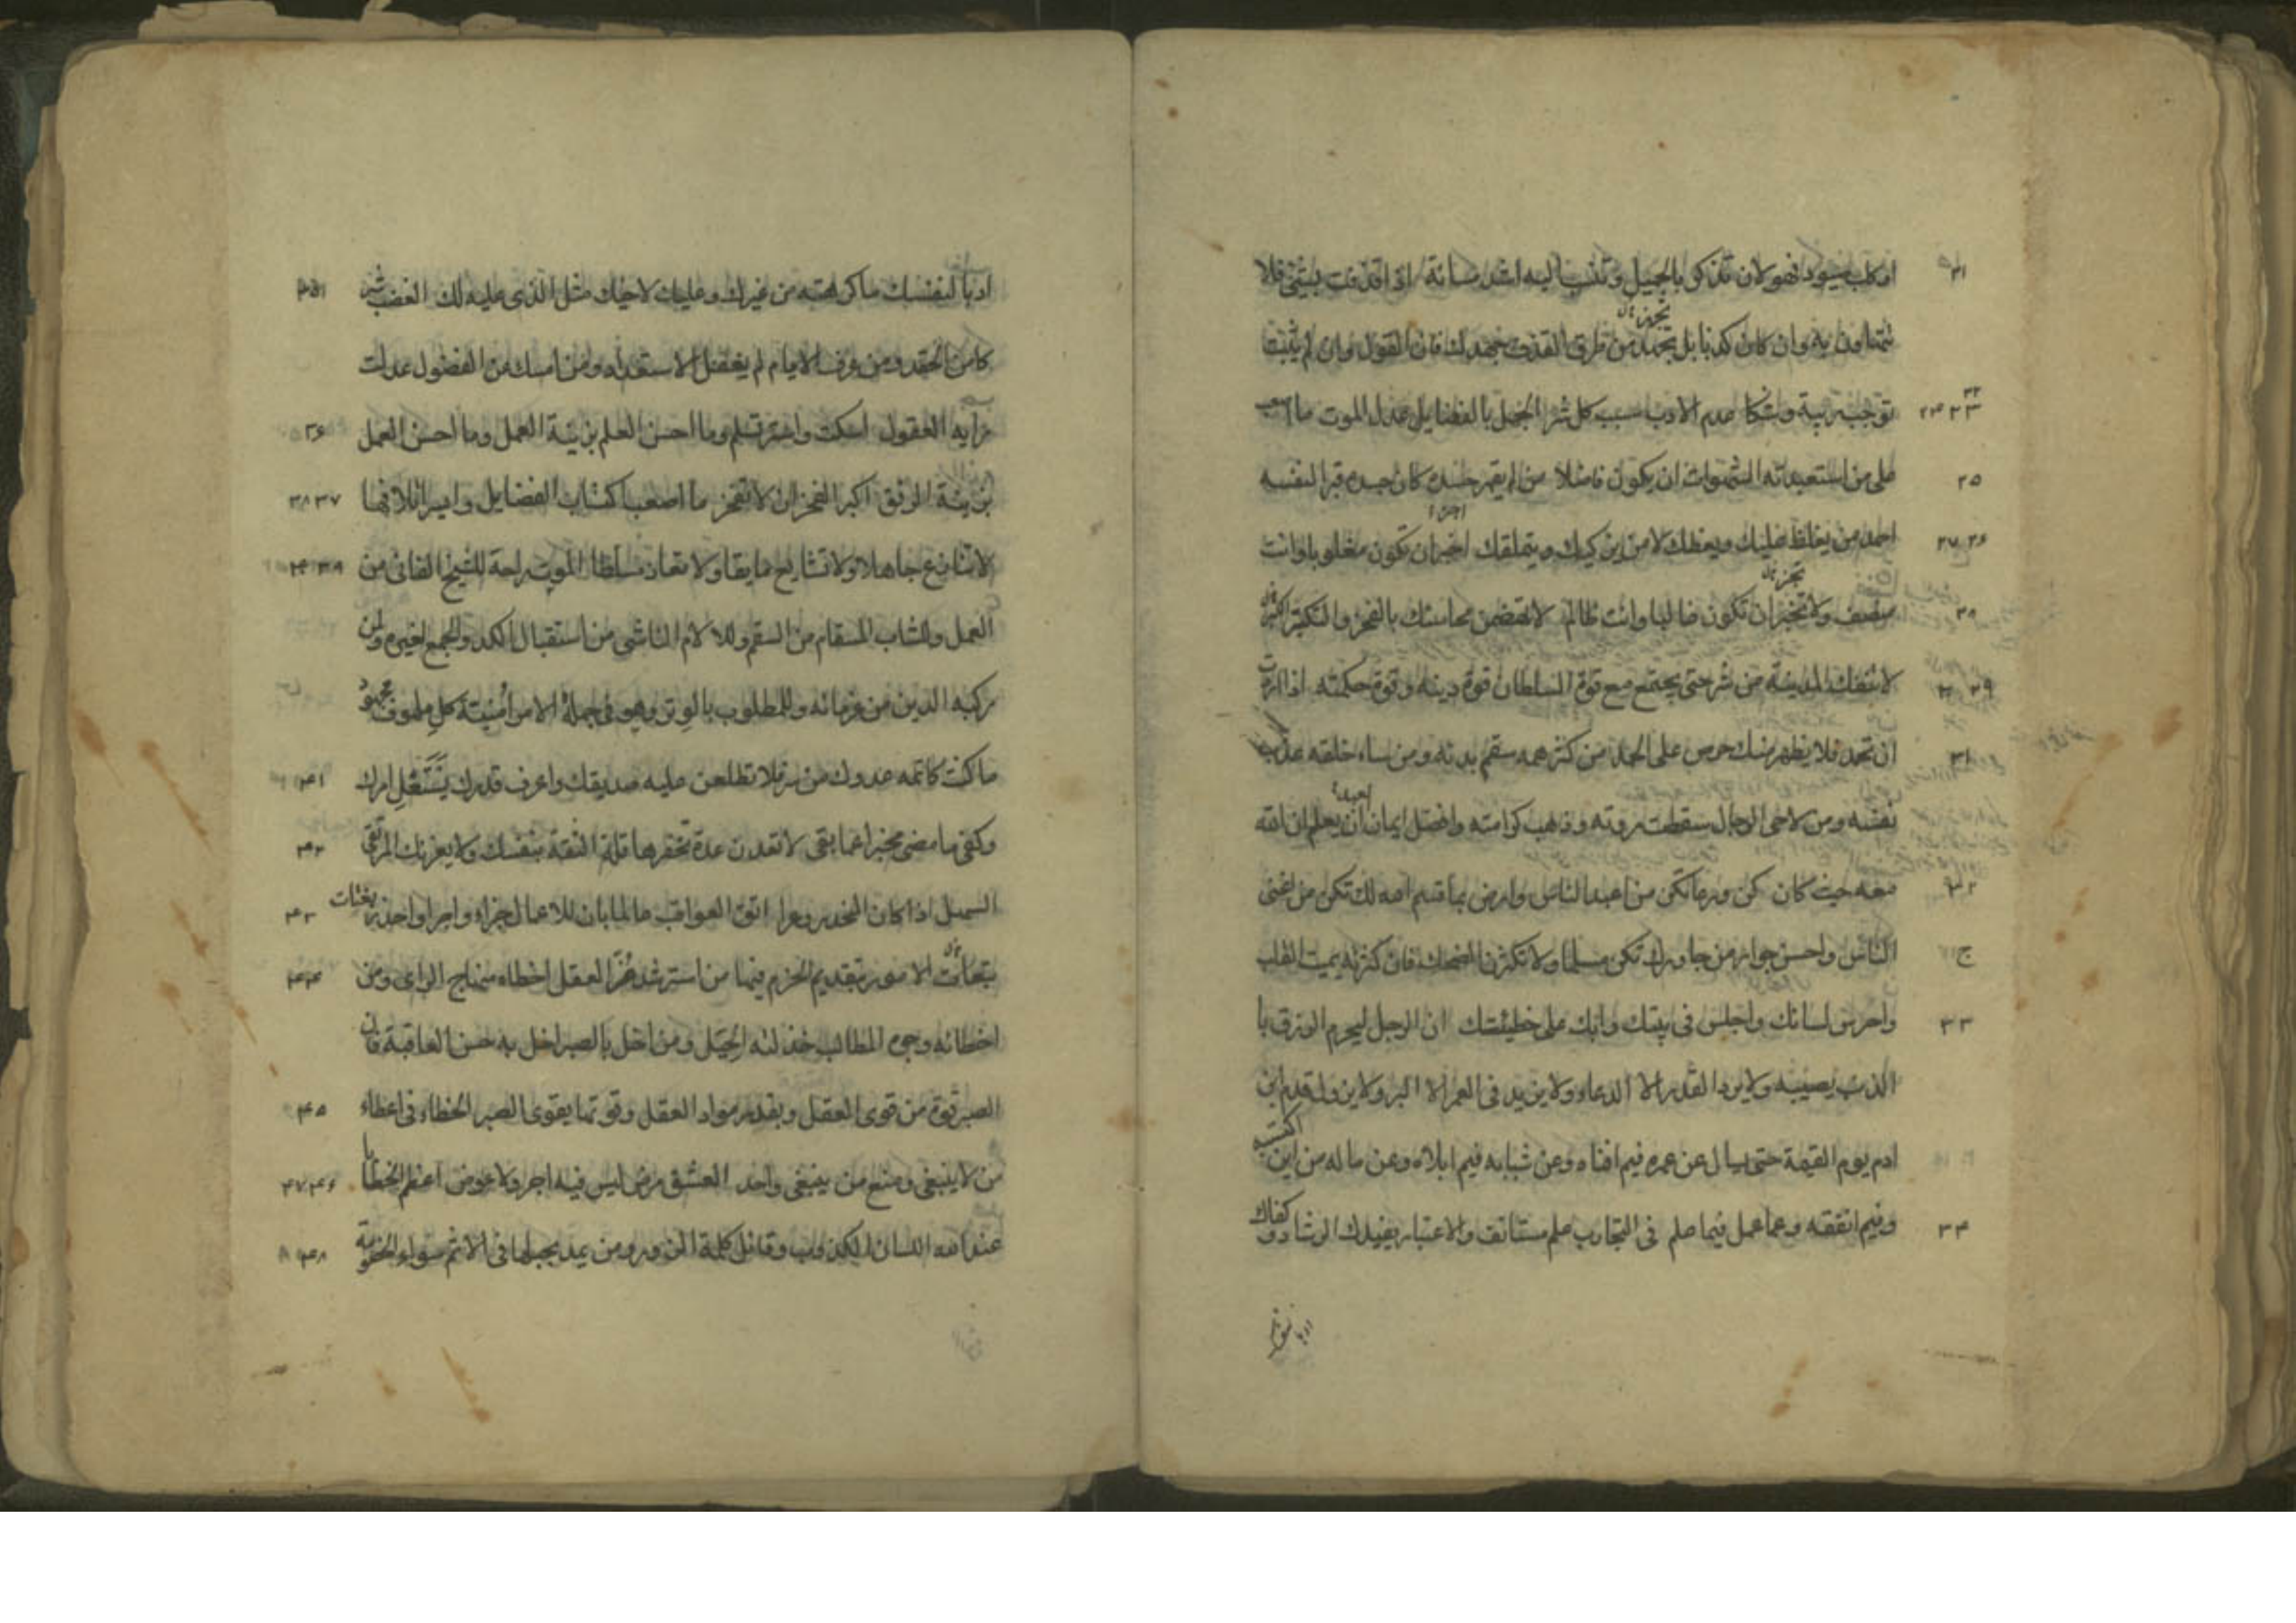 او كلب يسود فهو لان تذكر بالجميل وتنسب اليه اشد مسائة اذا قذفت بشئ فلا
تتهاون به وان كان كذبا بل تحرز من طرق القذف جهدك فان القول وان لم يثبت
توجب ريبة وشكا عدم الادب سبب كل شر الجهل بالفضايل عدل الموت ما اصعب
على من استعبدته الشهوات ان يكون فاضلا من لم يقهر جسده كان جسده قبرا لنفسه
احمد من يغلظ عليك ويعظك لا من يزكيك ويتملقك اختر ان تكون مغلوبا وانت
منصف ولا تختر ان تكون غالبا وانت ظالم لا تهضمن محاسنك بالفخر والتكبر
لا تنفك المدينة من شر حتى يجتمع مع قوة السلطان قوة دينه وقوة حكمته اذا اردت
ان تحمد فلا يظهر منك حرص على الحمد من كثر همه سقم بدنه ومن ساء خلقه عذب
نفسه ومن لاحى الرجال سقطت مروته وذهب كرامته وافضل ايمان العبد ان يعلم ان الله
معه حيث كان كن ورعا تكن من اعبد الناس وارض بما قسم الله لك تكن من اغنى
الناس واحسن جوار من جاورك تكن مسلما ولا تكثرن الضحك فان كثرته يميت القلب
واخرس لسانك واجلس في بيتك وابك على خطيئتك ان الرجل ليحرم الرزق با
الذنب يصيبه ولا يرد القدر الا الدعاء ولا يزيد في العمر الا البر ولا يزول قدم ابن
ادم يوم القيمة حتى يسال عن عمره فيم افناه وعن شبابه فيم ابلاه وعن ماله من اين اكتسبه
وفيم انفقه وعما عمل فيما علم في التجارب علم مستانف والاعتبار يفيدك الرشاد وكفاك
ادبا لنفسك ما كرهته من غيرك وعليك لاخيك مثل الذي عليه لك الغضب يثير
كامن الحقد ومن عرف الايام لم يغفل الاستعداد ومن امسك من الفضول عدلت
رايه العقول اسكت واستر تسلم وما احسن العلم يزينه العمل وما احسن العمل
يزينه الرفق اكبر الفخر ان لا تفخر ما اصعب اكتساب الفضايل وايسر اتلافها
لا تنازع جاهلا ولا تشايع مايقا ولا تعاد مسلطا الموت راحة للشيخ الفاني من
العمل وللشاب المسقام من السقم وللغلام الناشي من استقبال الكد والجمع لغيره ولمن
ركبه الدين من غرمائه وللمطلوب بالوتر وهو في جملة الامر امنية كل ملهوف مجهود
ما كنت كاتمه عدوك من سر فلا تطلعن عليه صديقك واعرف قدرك يستعل امرك
وكفى ما مضى مخبرا عما بقى لا تعدن عدة تحقرها قلة الثقة بنفسك ولا يغرنك المرتقى
السهل اذا كان المنحدر وعرا اتق العواقب عالما بان للاعمال جزاء واجرا واحذر تبعات
الامور بتقديم الحزم فيها من استرشد غير العقل اخطاه منهاج الراي ومن
اخطائه وجوه المطالب خذلته الحيل ومن اخل بالصبر اخل به حسن العاقبة فان
الصبر قوة من قوى العقل وبقدر مواد العقل وقوتها يقوى الصبر الخطاء في اعطاء
من لا ينبغي ومنع من ينبغي واحد العشق مرض ليس فيه اجر ولا عوض اعظم الخطايا
عند الله اللسان الكذوب وقائل كلمة الزور ومن يمد بحبلها في الاثم سواء الخصومة